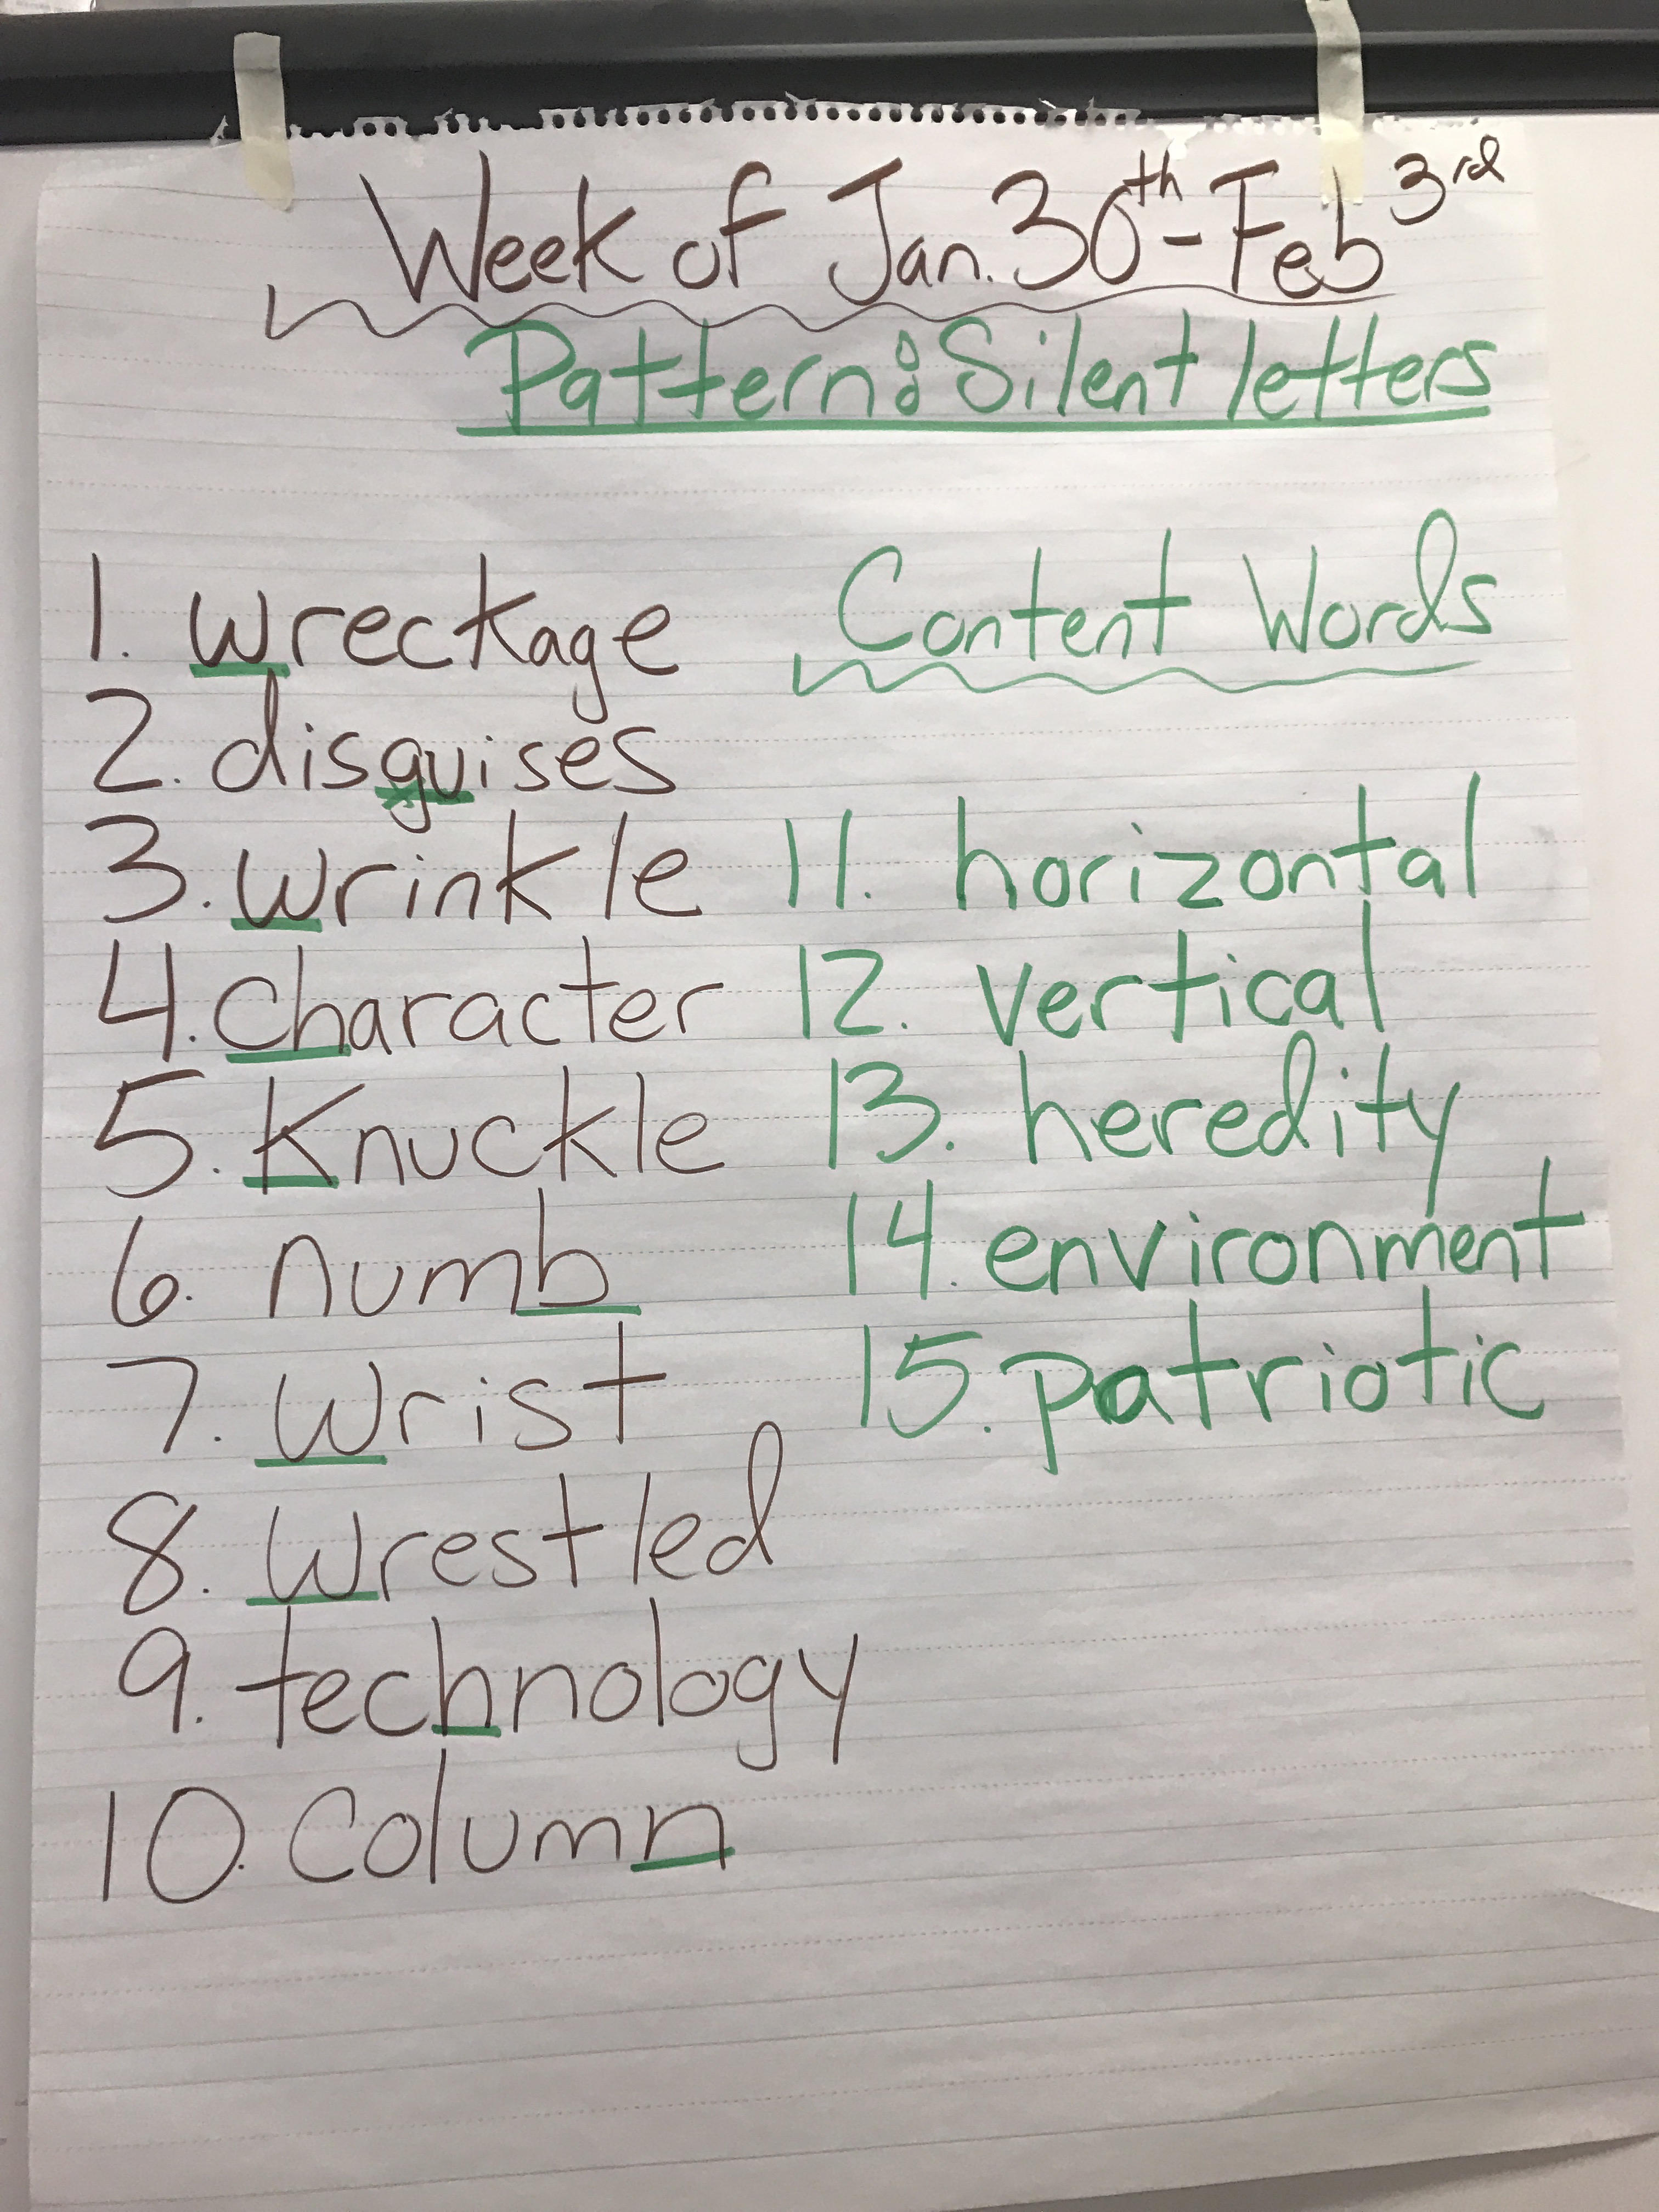 Week of Jan. 30th - Feb 3rd
Pattern: Silent letters
1. wreckage
2. disguises
3. wrinkle
4. character
5. Knuckle
6. numb
7. Wrist
8. Wrestled
9. technology
10. Column
Content Words
11. horizontal
12. vertical
13. heredity
14. environment
15. patriotic